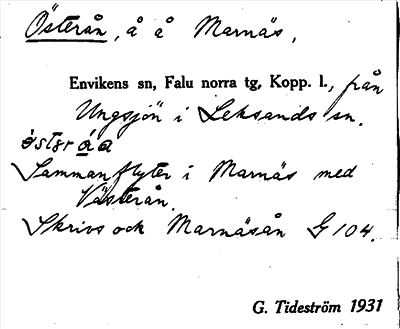 Österån, å å Marnäs,
Envikens sn, Falu norra tg, Kopp. l., från
Ungsjön i Leksands sn.
östər áa
Sammanflyter i Marnäs med
Västerån.
Skrivs ock Marnäsån G 104.
G. Tideström 1931